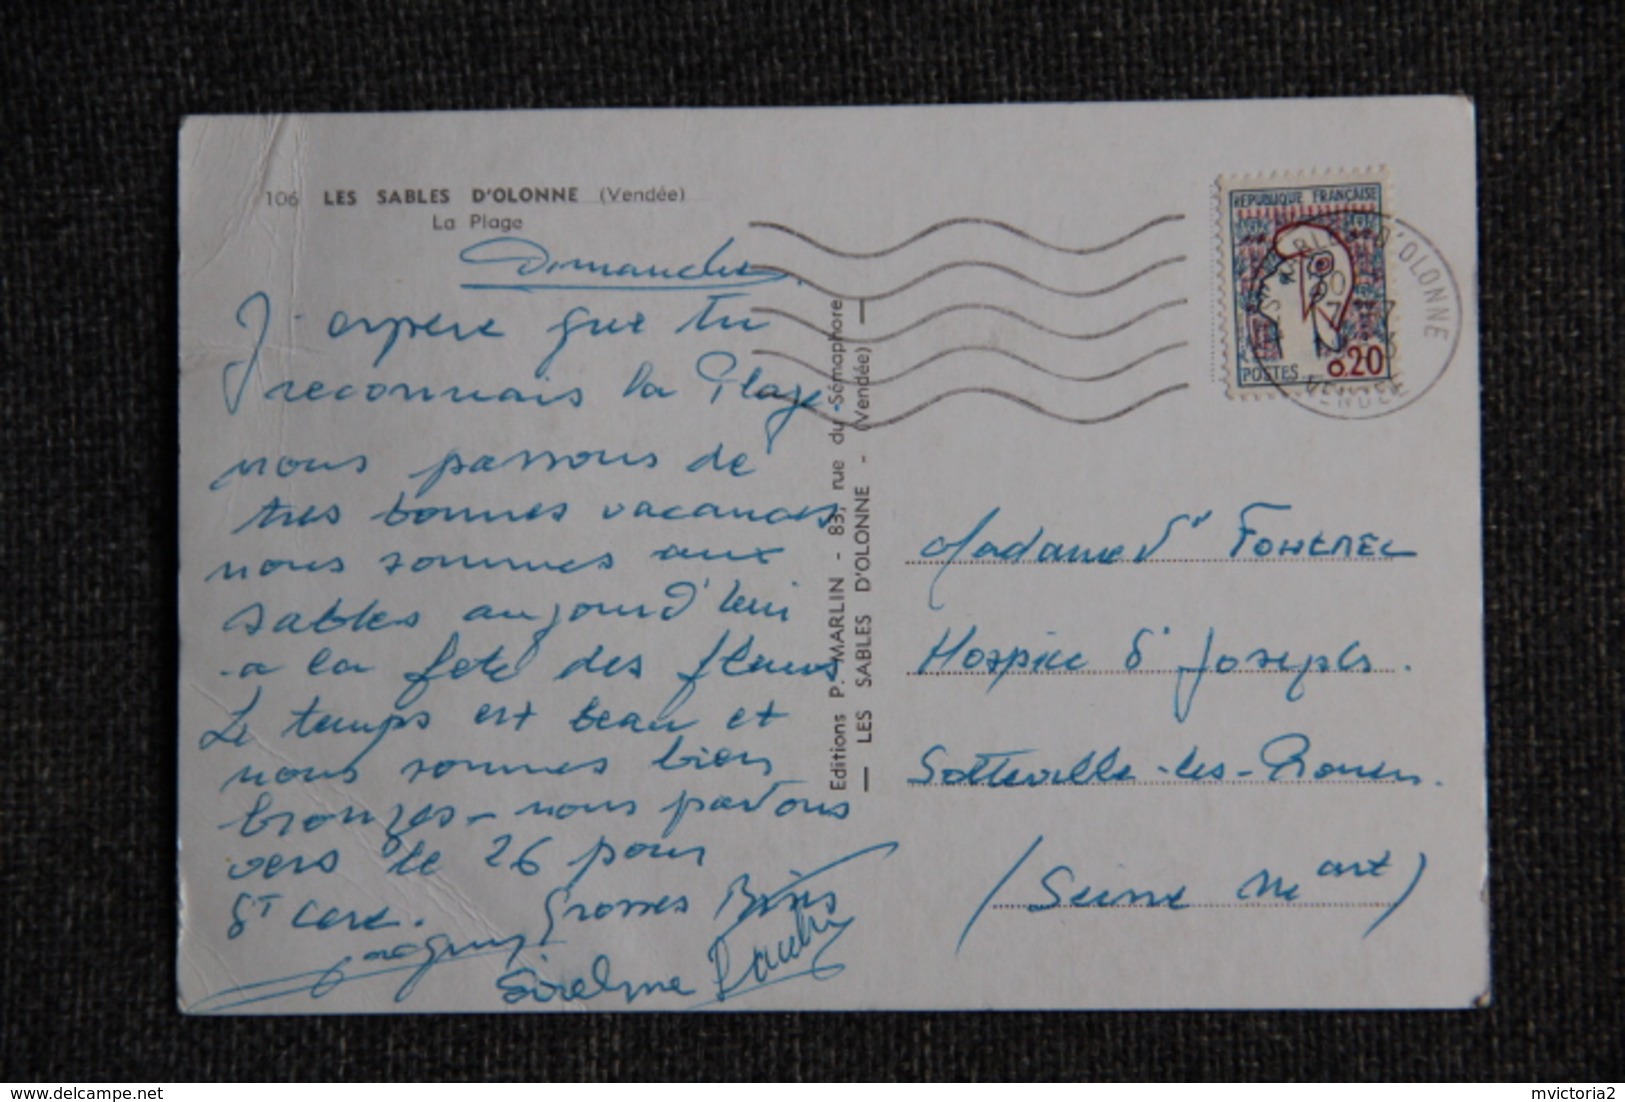 106 LES SABLES D'OLONNE (Vendée)
La Plage
Dimanche
J'espère que tu
reconnais la Plage
nous passons de
tres bonnes vacances
nous sommes aux
sables aujourd'hui
a la fete des fleurs
Le temps est beau et
nous sommes bien
bronzes - nous partons
vers le 26 pour
St Cere. Grosses Bises
Editions P. MARLIN - 83, rue du Sémaphore
— LES SABLES D'OLONNE - (Vendée) —
REPUBLIQUE FRANÇAISE
POSTES 0.20
D'OLONNE
VENDEE
Madame d'
Hospice St Joseph.
Sotteville-les-Rouen.
(Seine Mart)
mvictoria2